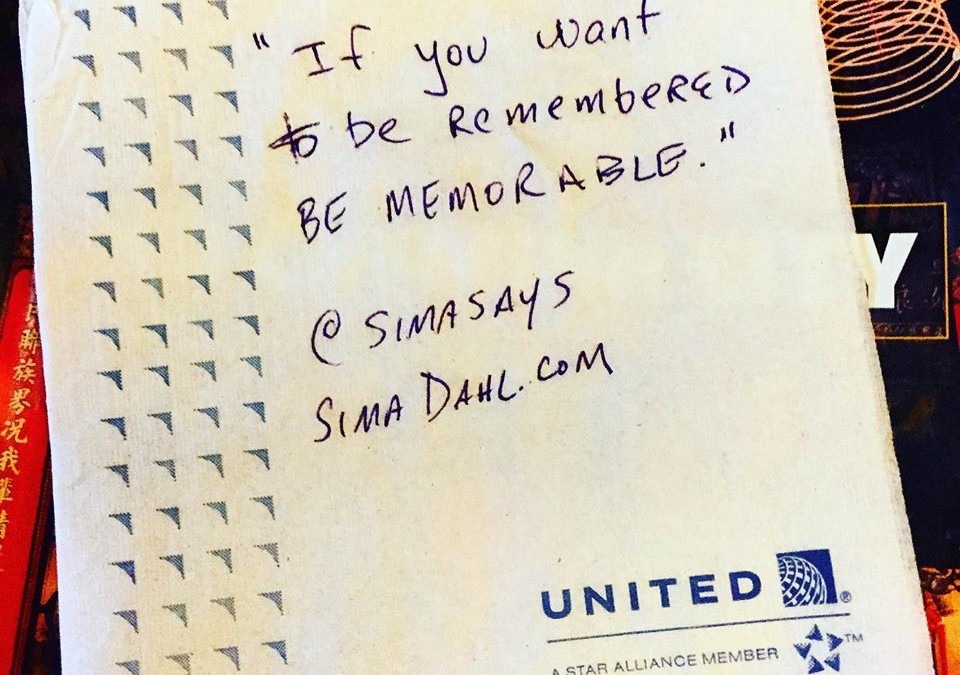 "If you want
to be RememberED
BE MEMORABLE."
@SIMASAYS
SIMADAHL.COM
UNITED
A STAR ALLIANCE MEMBER
TM
®
Y
聯
族
界
況
我
輩
情